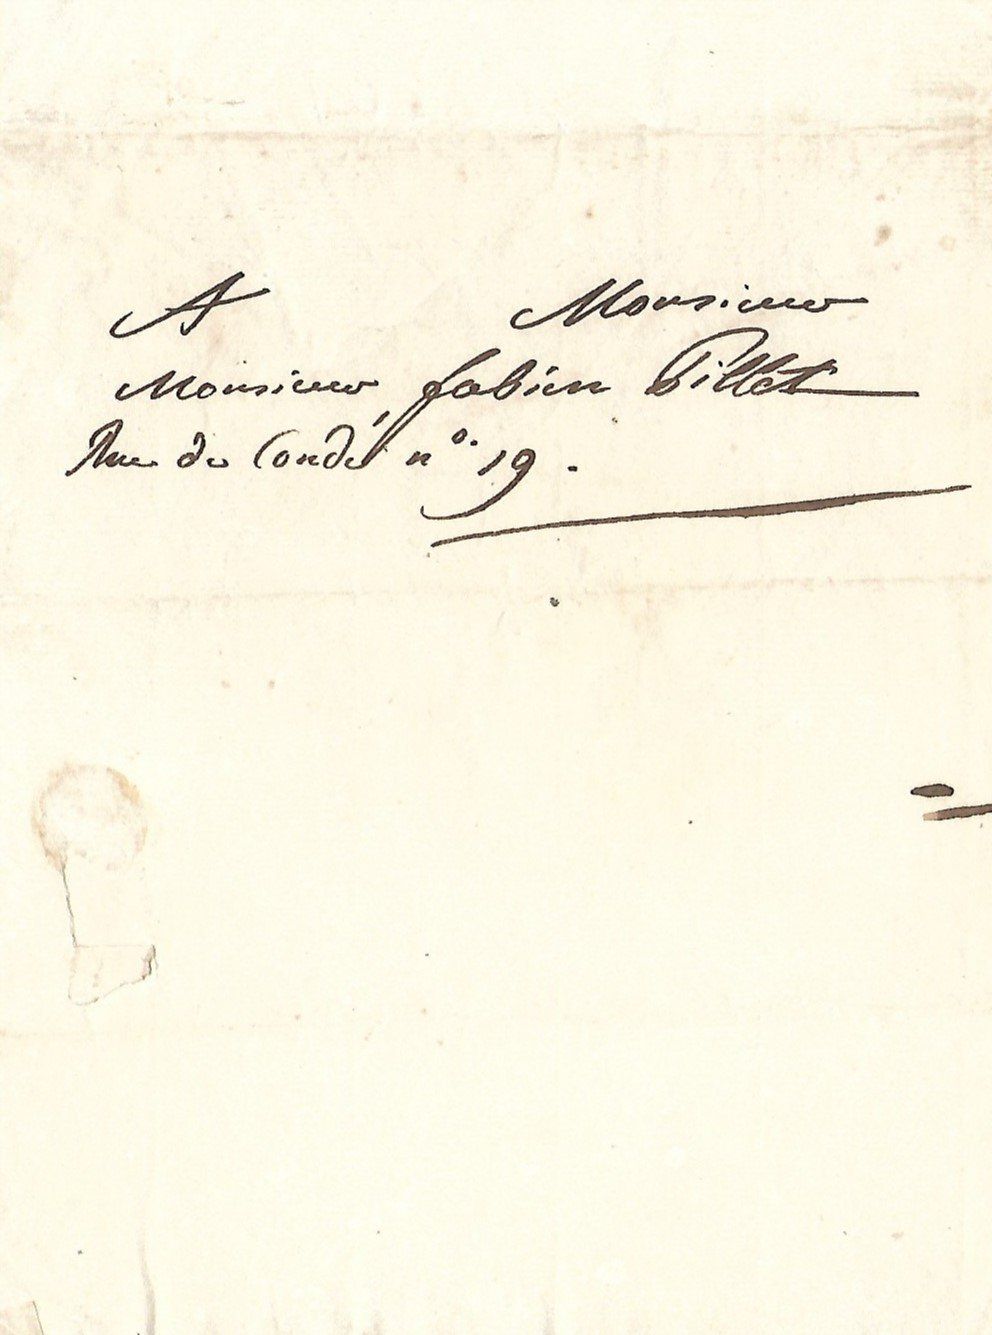 A Monsieur
Monsieur fabien Pillet
Rue de Condé n° 19.